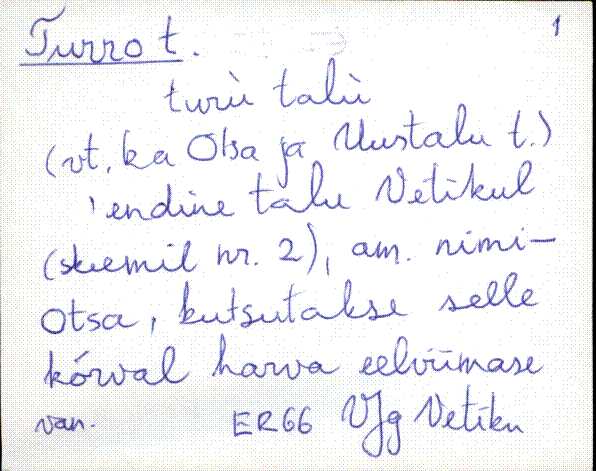 Turro t. 1
turù talù
(vt. ka Otsa ja Uustalu t.)
'endine talu Vetikul
(skeemil nr. 2), am. nimi-
Otsa, kutsutakse selle
kõrval harva eelviimase
van. ER66 VJg Vetiku